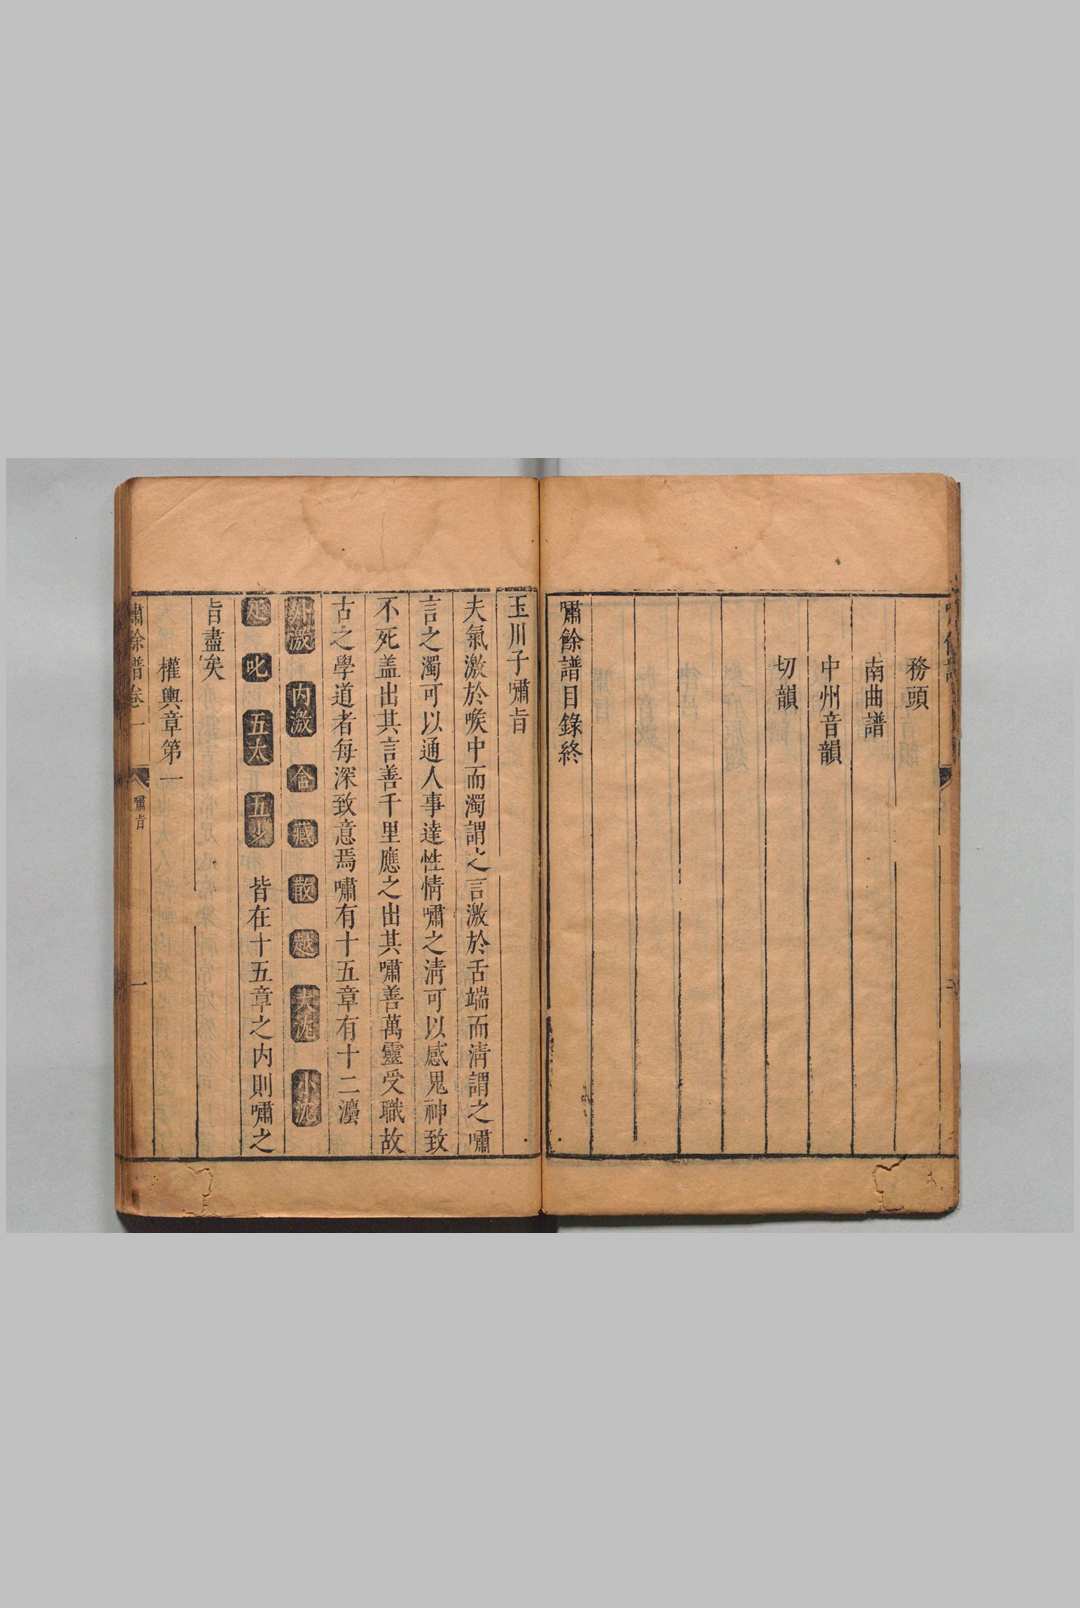 務頭
南曲譜
中州音韻
切韻
嘯餘譜目錄終
玉川子嘯旨
夫氣激於喉中而濁謂之言激於舌端而清謂之嘯
言之濁可以通人事達性情嘯之清可以感鬼神致
不死盖出其言善千里應之出其嘯善萬靈受職故
古之學道者每深致意焉嘯有十五章有十二灋
外激 内激 含 藏 散 越 大沉 小沉
疋 叱 五太 五少 皆在十五章之内則嘯之
旨盡矣
權輿章第一
嘯餘譜卷一 嘯旨 一